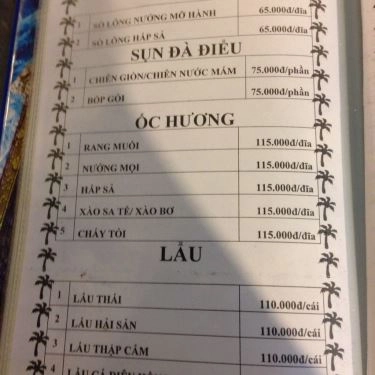 1 SÒ LÔNG NƯỚNG MỠ HÀNH 65.000đ/đĩa
2 SÒ LÔNG HẤP SẢ 65.000đ/đĩa
SỤN ĐÀ ĐIỂU
1 CHIÊN GIÒN/CHIÊN NƯỚC MẮM 75.000đ/phần
2 BÓP GỎI 75.000đ/phần
ỐC HƯƠNG
1 RANG MUỐI 115.000đ/đĩa
2 NƯỚNG MỌI 115.000đ/đĩa
3 HẤP SẢ 115.000đ/đĩa
4 XÀO SA TẾ/ XÀO BƠ 115.000đ/đĩa
5 CHÁY TỎI 115.000đ/đĩa
LẨU
1 LẨU THÁI 110.000đ/cái
2 LẨU HẢI SẢN 110.000đ/cái
3 LẨU THẬP CẨM 110.000đ/cái
4 LẨU CÁ